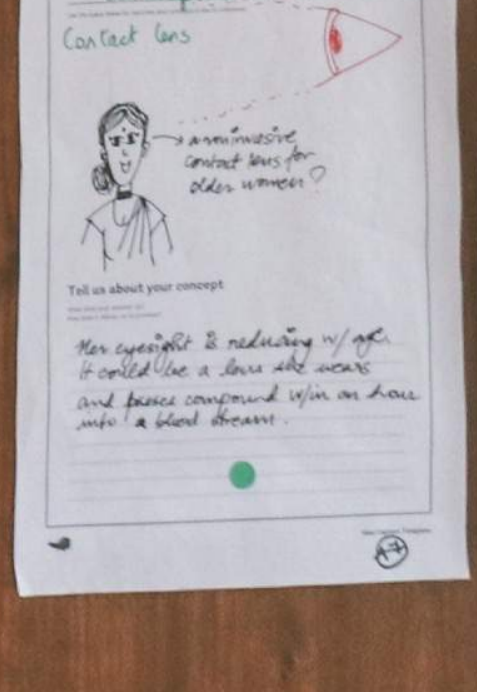 Contact lens
a noninvasive
contact lens for
older women
Tell us about your concept
Her eyesight is reducing w/ age
It could be a lens she wears
and passes compound w/in an hour
into a blood stream.
A-7